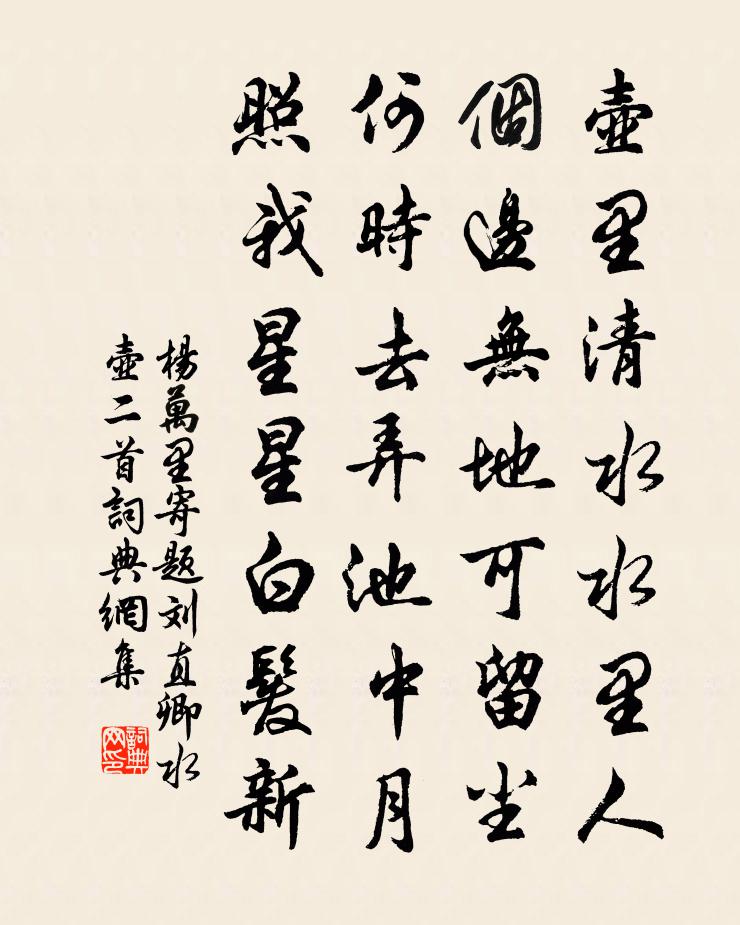 壺里清水水里人
個邊無地可留尘
何時去弄池中月
照我星星白髮新
楊萬里寄題刘直卿水
壺二首詞典網集
詞典
网印